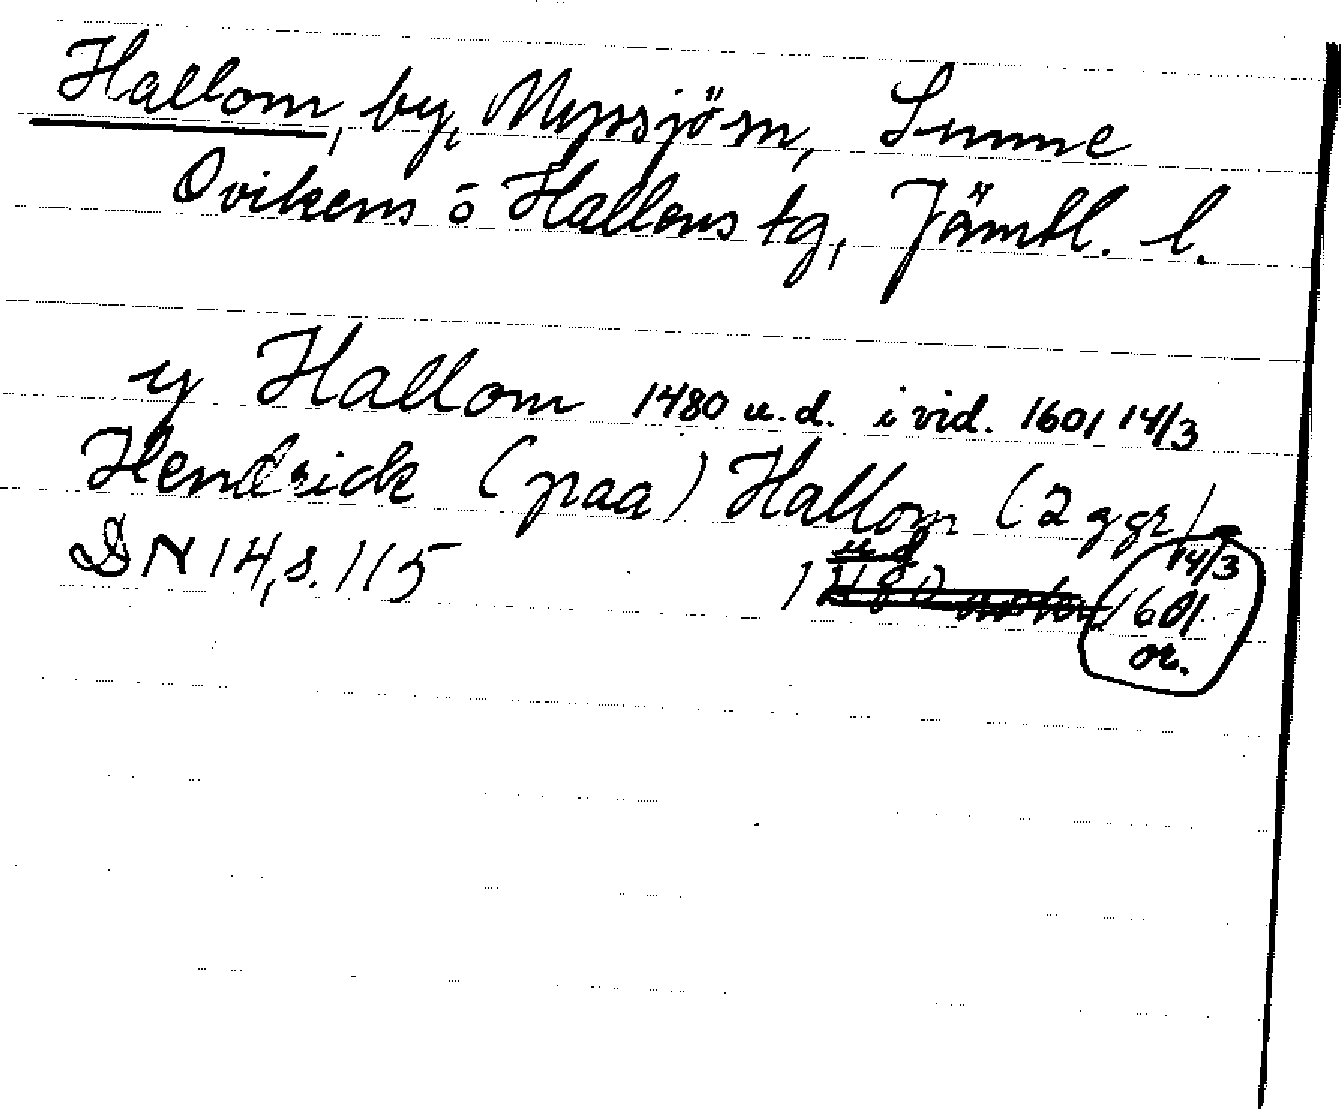 Hallom, by, Myssjön, Sunne
Ovikens o Hallens tg, Jämtl. l.
y Hallom 1480 u.d. i vid. 1601 14/3
Hendrick (paa) Hallom (2 ggr)
DN 14, s. 115 14/3
1601
or.